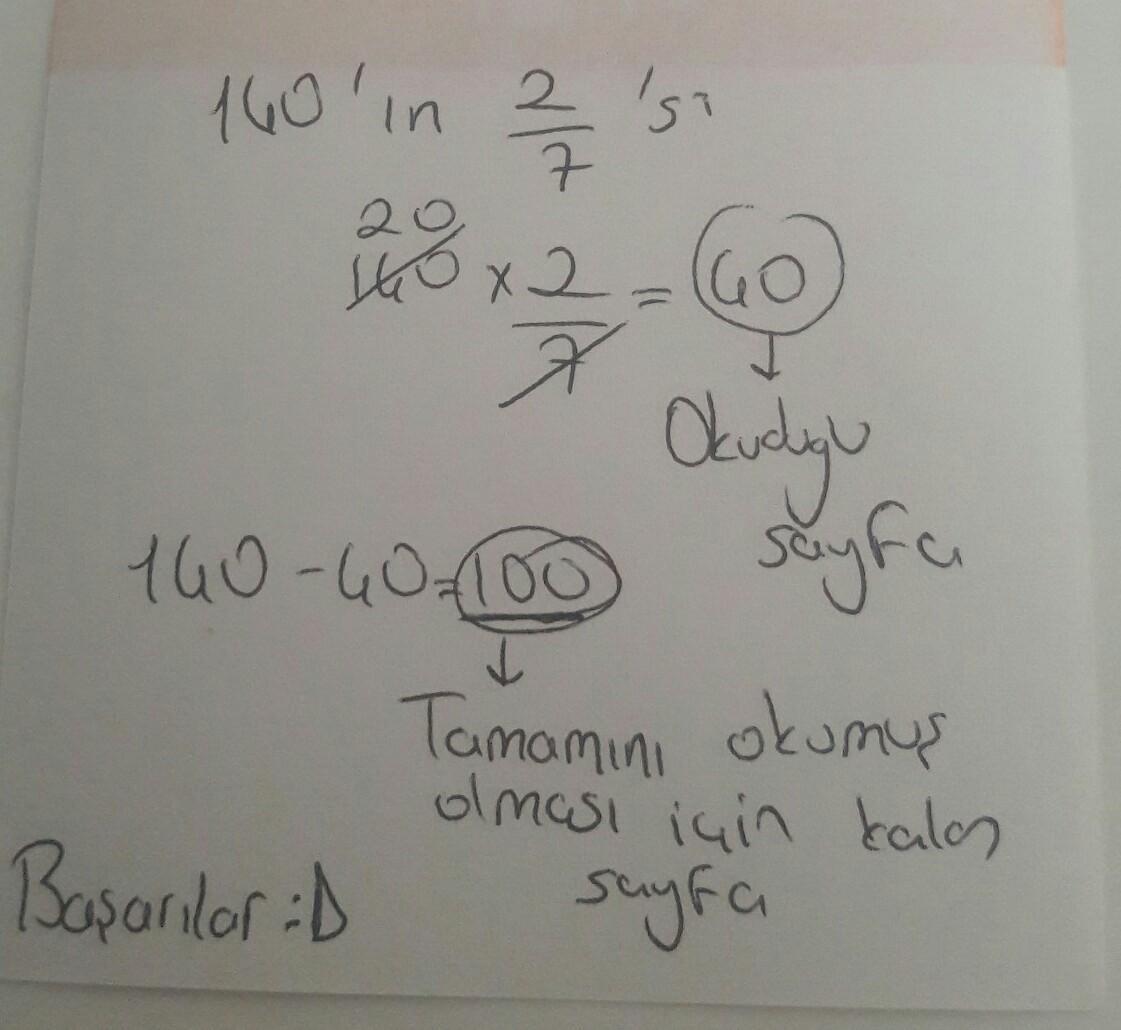 140'ın 2/7 'si
20
140 x 2/7 = 40
↓
Okuduğu
sayfa
140 - 40 = 100
↓
Tamamını okumuş
olması için kalan
sayfa
Başarılar :D